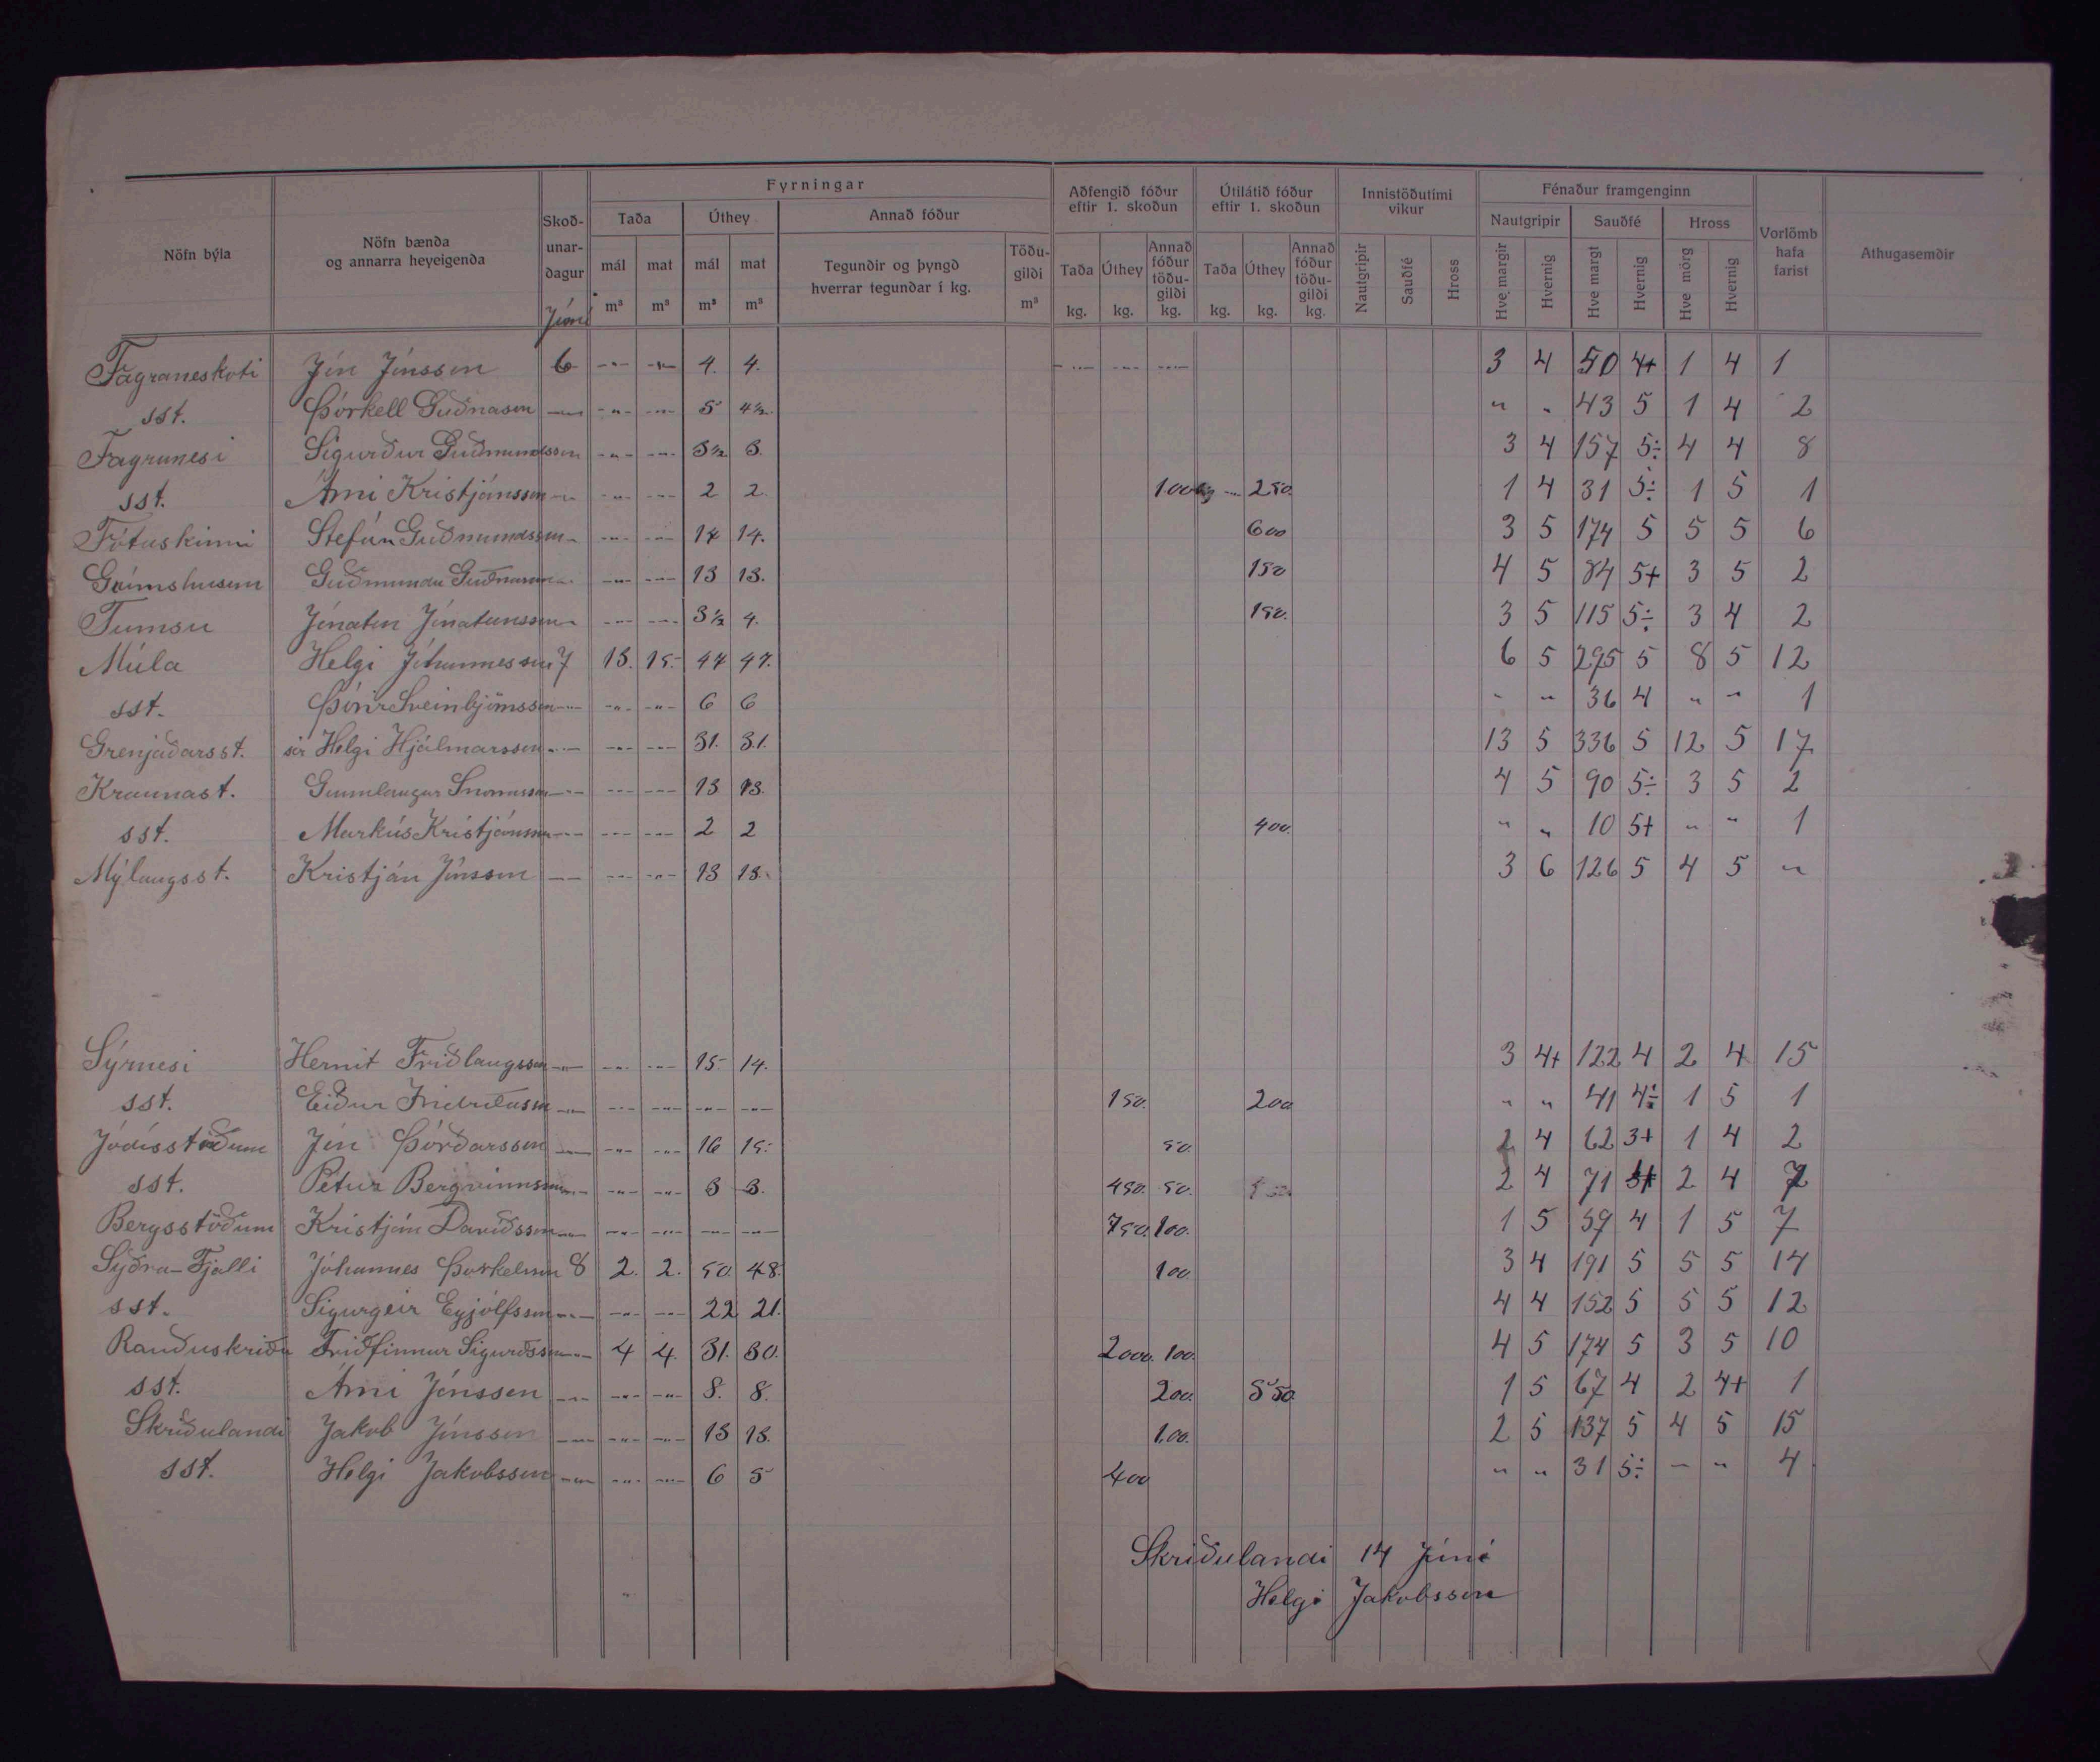 Nöfn býla
Nöfn bænda og annarra heyeigenda
Skoðunardagur
Júní
Fyrningar
Taða Úthey Annað fóður
mál m³ mat m³ mál m³ mat m³ Tegundir og þyngd hverrar tegundar í kg. Töðugildi m³
Aðfengið fóður eftir 1. skoðun
Taða kg. Úthey kg. Annað fóður töðugildi kg.
Útilátið fóður eftir 1. skoðun
Taða kg. Úthey kg. Annað fóður töðugildi kg.
Innistöðutími vikur
Nautgripir Sauðfé Hross
Fénaður framgenginn
Nautgripir Sauðfé Hross
Hve margir Hvernig Hve margt Hvernig Hve mörg Hvernig
Vorlömb hafa farist
Athugasemdir
Fagraneskoti Jón Jónsson 6 -"- -"- 4. 4. -"- -"- -"- 3 4 50 4+ 1 4 1
sst. Þórkell Guðnason -"- -"- -"- 5 4½ " " 43 5 1 4 2
Fagranesi Sigurður Guðmundsson -"- -"- 3½ 3. 3 4 157 5÷ 4 4 8
sst. Árni Kristjánsson -"- -"- -"- 2 2. 100 kg -"- 250. 1 4 31 5÷ 1 5 1
Fótaskinni Stefán Guðmundsson -"- -"- -"- 14 14. 600 3 5 174 5 5 5 6
Grímshusum Guðmundu Guðnason -"- -"- -"- 13 13. 150 4 5 84 5+ 3 5 2
Tumsu Jónatan Jónatansson -"- -"- -"- 3½ 4. 150. 3 5 115 5÷ 3 4 2
Múla Helgi Jóhannesson 7 13. 15. 47 47. 6 5 295 5 8 5 12
sst. Þórir Sveinbjörnsson -"- -"- -"- 6 6 " " 36 4 " " 1
Grenjaðarsst. sér Helgi Hjálmarsson -"- -"- -"- 31. 31. 13 5 336 5 12 5 17
Kraunast. Gunnlaugur Snorrason -"- -"- -"- 13 13. 4 5 90 5÷ 3 5 2
sst. Markús Kristjánsson -"- -"- -"- 2 2 400. " " 10 5+ " " 1
Mýlaugsst. Kristján Jónsson -"- -"- -"- 13 13. 3 6 126 5 4 5 "
Sýrnesi Hernit Friðlaugsson -"- -"- -"- 15 14. 3 4+ 122 4 2 4 15
sst. Eiður -"- -"- -"- -"- -"- 150. 200 " " 41 4÷ 1 5 1
Jódísstöðum Jón Þórðarsson -"- -"- -"- 16 15. 50. 2 4 62 3+ 1 4 2
sst. Pétur Bergvinnsson -"- -"- -"- 3 3. 450. 50. 2 4 71 2 4 7
Bergsstöðum Kristján Davíðsson -"- -"- -"- -"- -"- 750. 100. 1 5 59 4 1 5 7
Syðra-Fjalli Jóhannes Þorkelsson 8 2. 2. 50. 48. 100. 3 4 191 5 5 5 14
sst. Sigurgeir Eyjólfsson -"- -"- -"- 22 21. 4 4 152 5 5 5 12
Rauðuskriðu Friðfinnur Sigurðsson -"- 4 4. 31. 30. 2000. 100. 4 5 174 5 3 5 10
sst. Árni Jónsson -"- -"- -"- 8. 8. 200. 550. 1 5 67 4 2 4+ 1
Skriðulandi Jakob Jónsson -"- -"- -"- 13 13. 100. 2 5 137 5 4 5 15
sst. Helgi Jakobsson -"- -"- -"- 6 5 400 " " 31 5÷ " " 4
Skriðulandi 14 Júní
Helgi Jakobsson